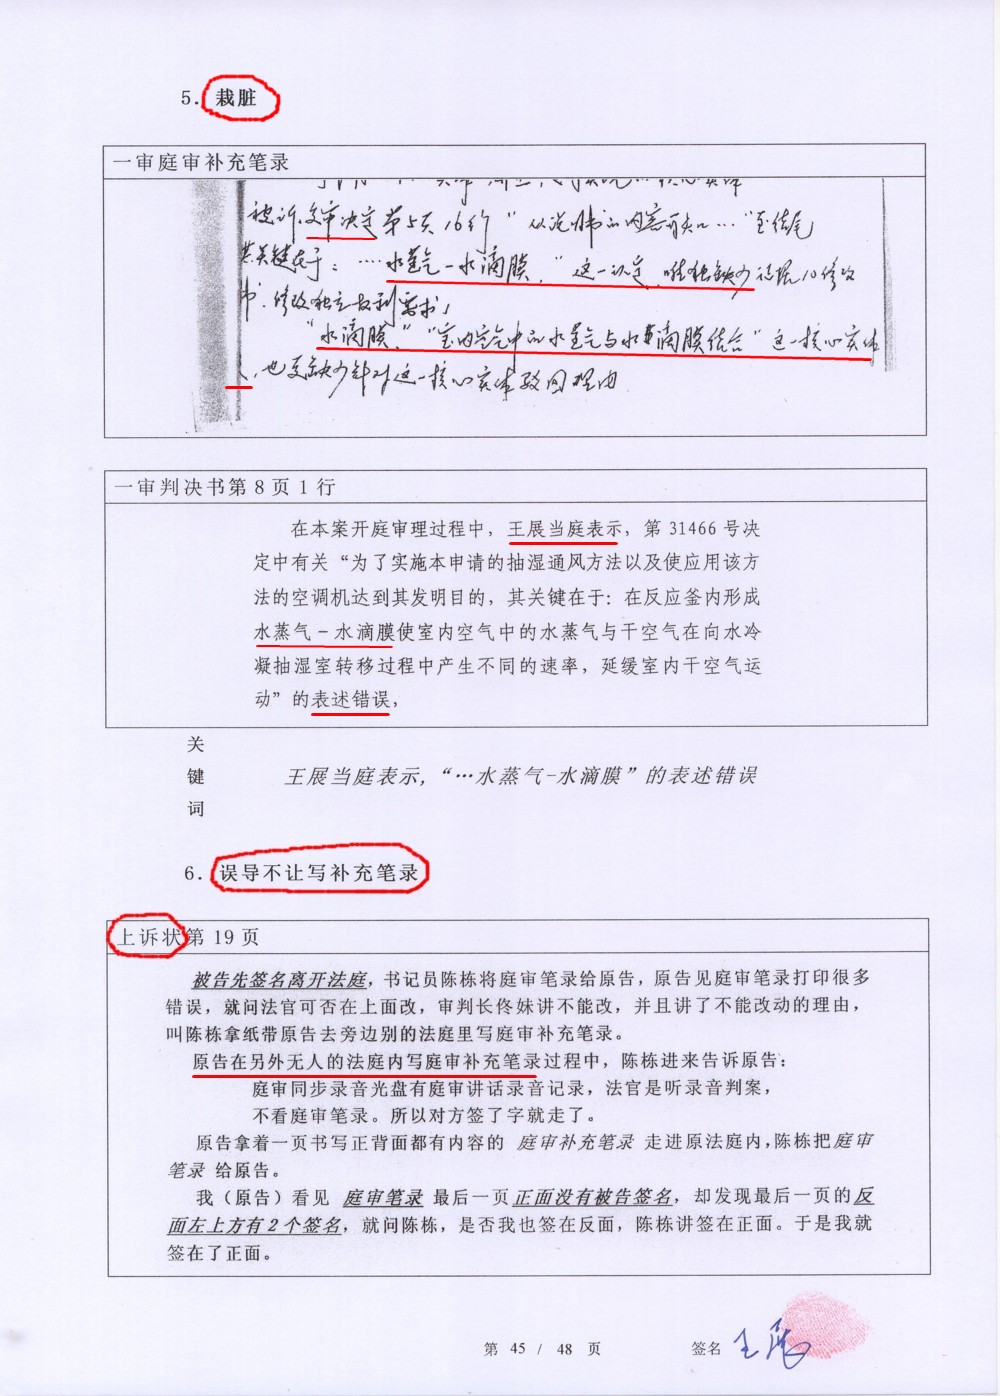 5. 栽脏
一审庭审补充笔录
被诉复审决定第5页16行“从说明书的内容可知…”至结尾
其关键在于：…水蒸气一水滴膜，”这一认定，唯独缺少证据10修改
书．修改独立权利要求，
“水滴膜，”“室内空气中的水蒸气与水滴膜结合”这一核心实体
，也更缺少针对这一核心实体驳回理由
一审判决书第 8 页 1 行
在本案开庭审理过程中，王展当庭表示，第 31466 号决
定中有关“为了实施本申请的抽湿通风方法以及使应用该方
法的空调机达到其发明目的，其关键在于：在反应釜内形成
水蒸气－水滴膜使室内空气中的水蒸气与干空气在向水冷
凝抽湿室转移过程中产生不同的速率，延缓室内干空气运
动”的表述错误，
关
键 王展当庭表示，“…水蒸气-水滴膜”的表述错误
词
6. 误导不让写补充笔录
上诉状第 19 页
被告先签名离开法庭，书记员陈栋将庭审笔录给原告，原告见庭审笔录打印很多
错误，就问法官可否在上面改，审判长佟姝讲不能改，并且讲了不能改动的理由，
叫陈栋拿纸带原告去旁边别的法庭里写庭审补充笔录。
原告在另外无人的法庭内写庭审补充笔录过程中，陈栋进来告诉原告：
庭审同步录音光盘有庭审讲话录音记录，法官是听录音判案，
不看庭审笔录。所以对方签了字就走了。
原告拿着一页书写正背面都有内容的 庭审补充笔录 走进原法庭内，陈栋把庭审
笔录 给原告。
我（原告）看见 庭审笔录 最后一页正面没有被告签名，却发现最后一页的反
面左上方有2个签名，就问陈栋，是否我也签在反面，陈栋讲签在正面。于是我就
签在了正面。
第 45 / 48 页 签名 王展